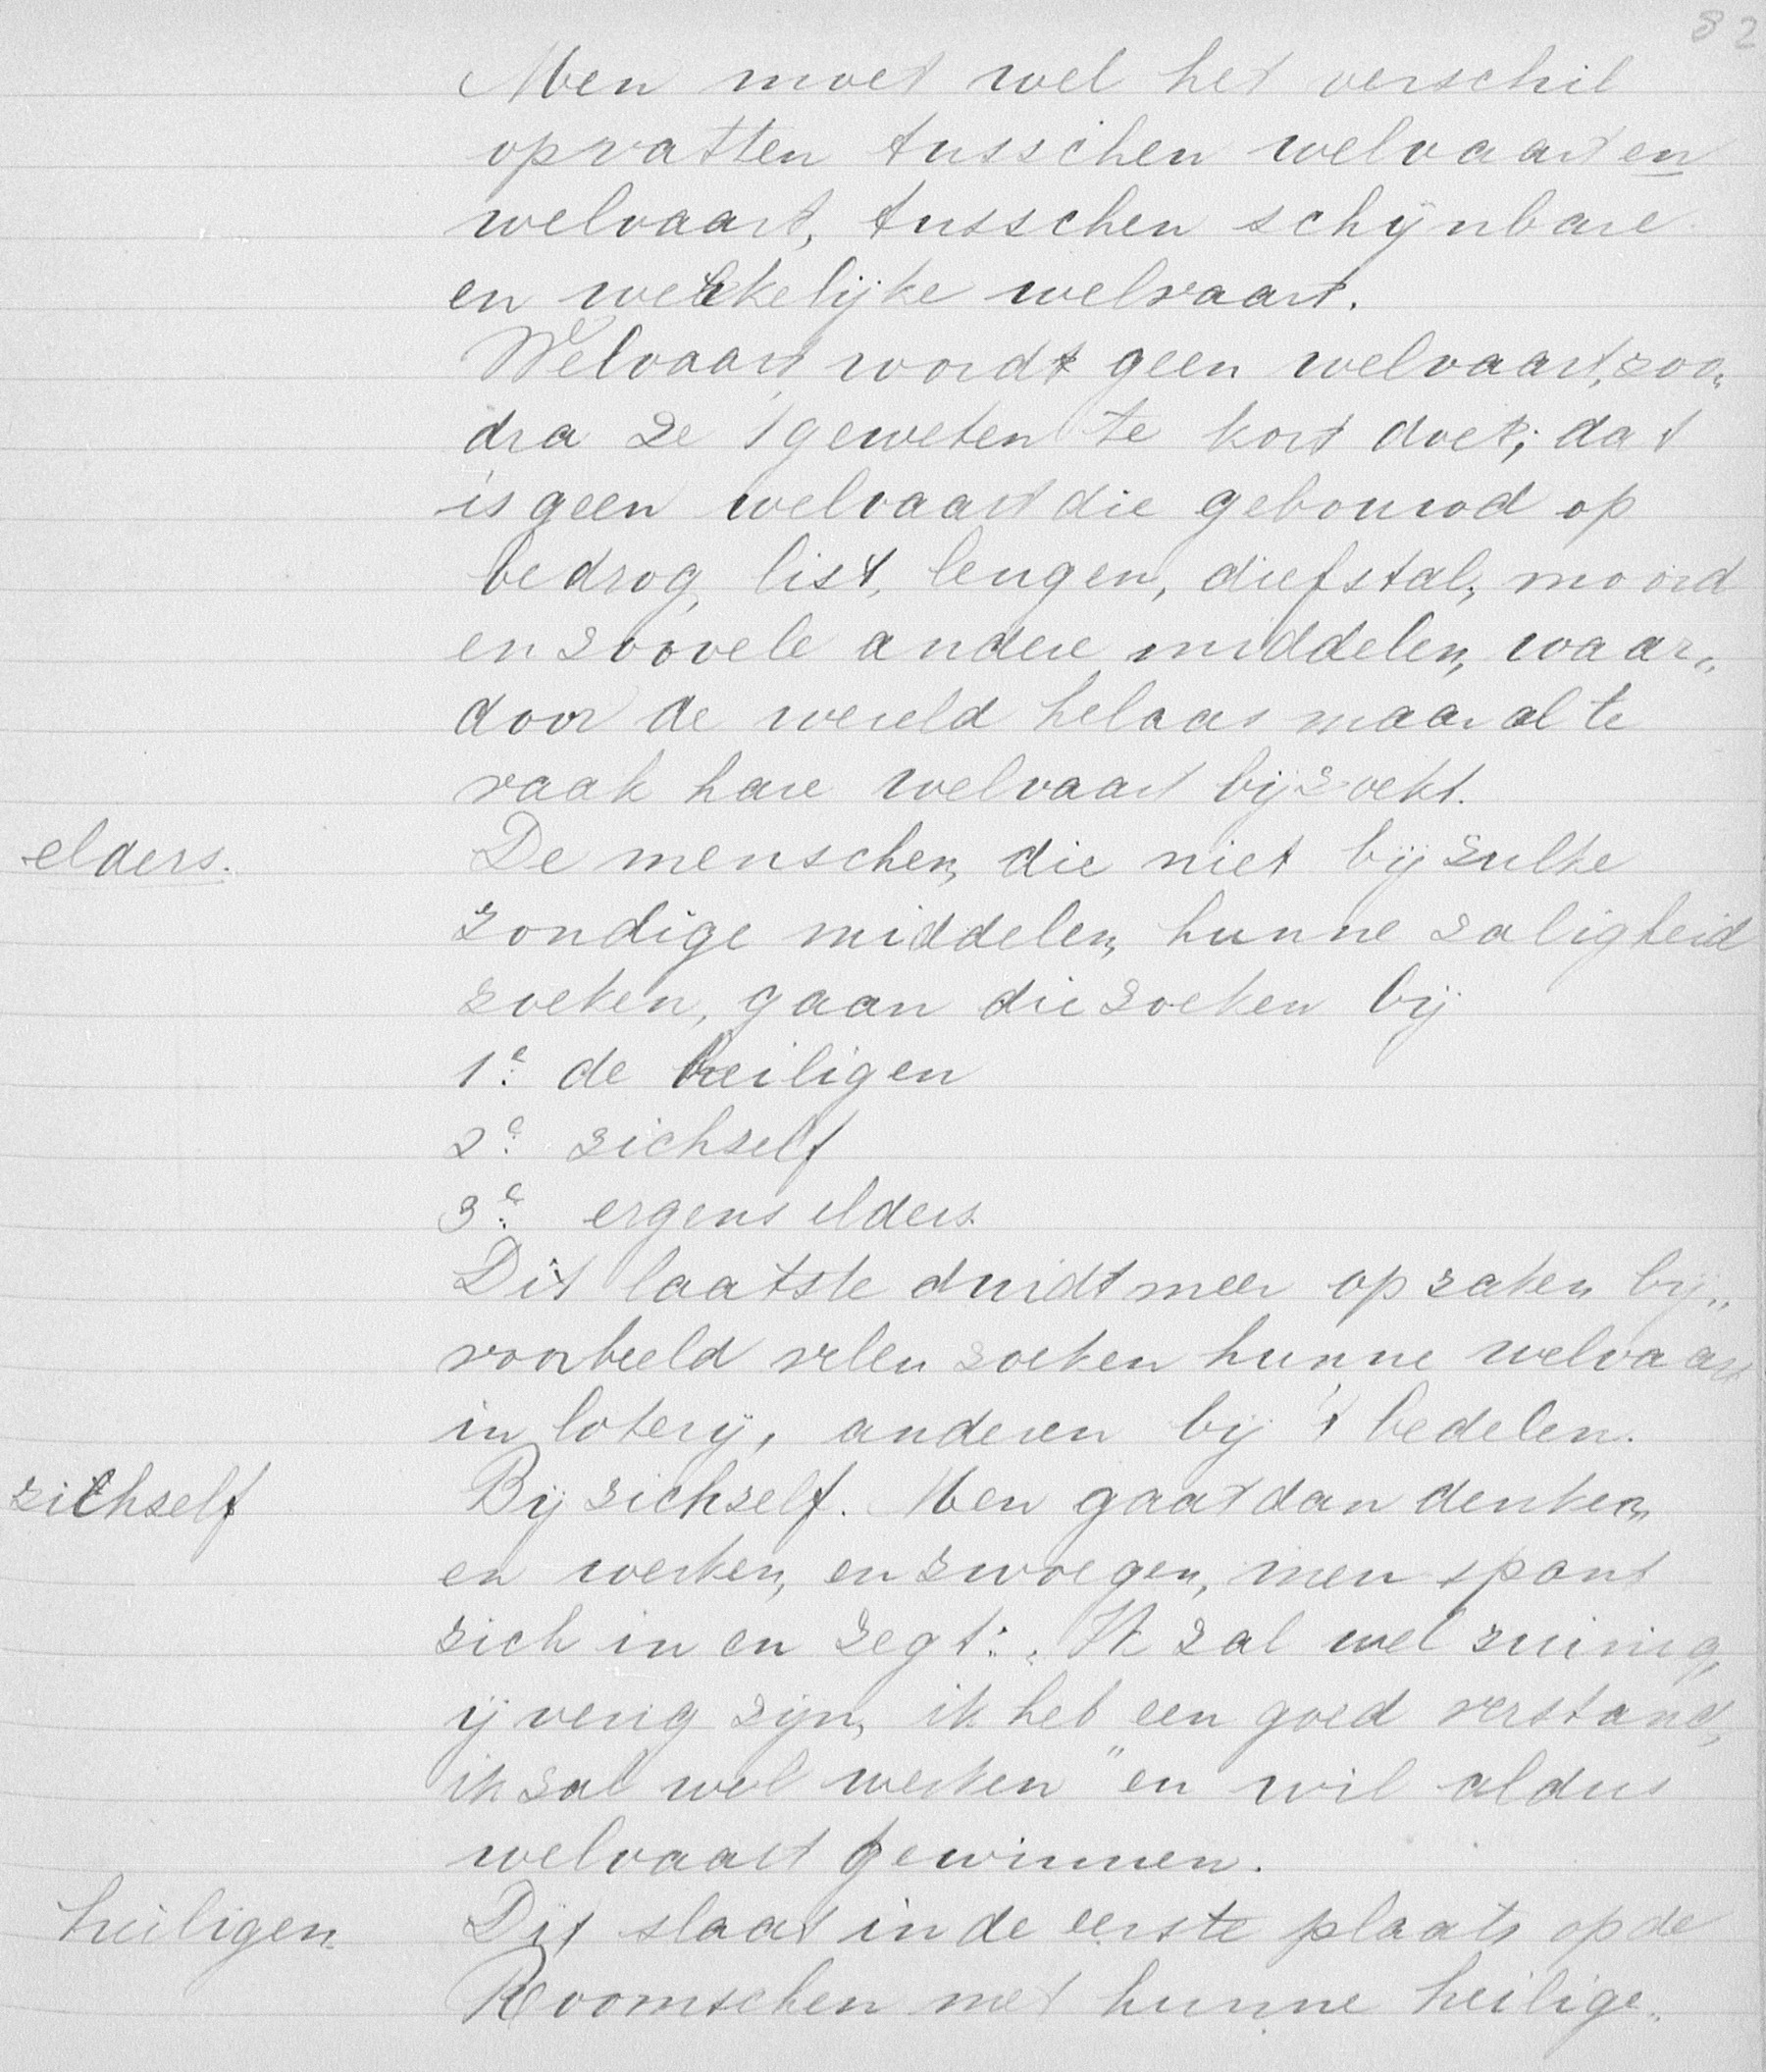 82
Men moet wel het verschil
opvatten tusschen welvaart en
welvaart, tusschen schijnbare
en werkelijke welvaart.
Welvaart wordt geen welvaart, zoo„
dra ze 't geweten te kort doet; dat
is geen welvaart die gebouwd op
bedrog, list, leugen, diefstal, moord
en zoovele andere middelen, waar„
door de wereld helaas maar al te
vaak hare welvaart bij zoekt.
elders. De menschen, die niet bij zulke
zondige middelen, hunne zaligheid
zoeken, gaan die zoeken bij
1e. de heiligen
2e. zichzelf
3e. ergens elders.
Dit laatste duidt meer op zaken bij„
voorbeeld velen zoeken hunne welvaart
in loterij, anderen bij 't bedelen.
zichzelf Bij zichzelf. Men gaat dan denken,
en werken, en zwoegen, men spant
zich in en zegt: „Ik zal wel zuinig,
ijverig zijn, ik heb een goed verstand,
ik zal wel werken" en wil aldus
welvaart gewinnen.
heiligen. Dit slaat in de eerste plaats op de
Roomschen met hunne heilige„